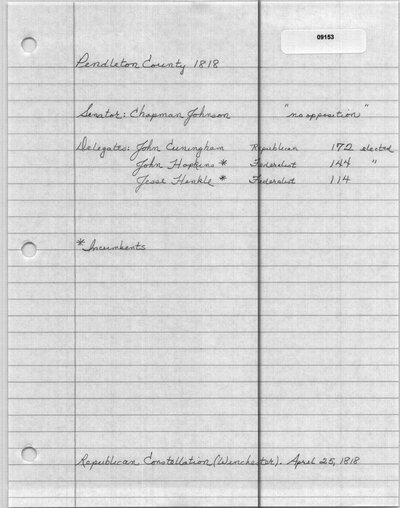 09153
Pendleton County 1818
Senator: Chapman Johnson "no opposition"
Delegates: John Cuningham Republican 172 elected
John Hopkins * Federalist 144 "
Jesse Henkle * Federalist 114
* Incumbents
Republican Constellation (Winchester). April 25, 1818